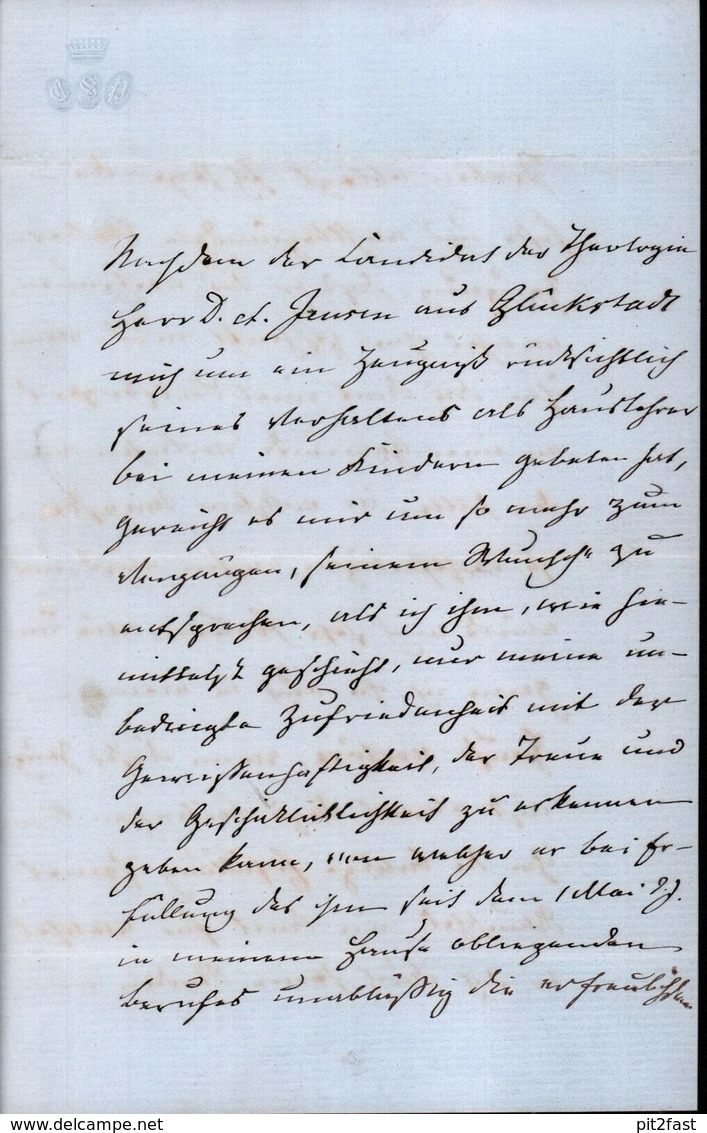 Nachdem der Candidat der Theologie
Herr D. A. Jensen aus Glückstadt
mich um ein Zeugniß rücksichtlich
seines Verhaltens als Hauslehrer
bei meinen Kindern gebeten hat,
gereicht es mir um so mehr zum
Vergnügen, seinem Wunsche zu
entsprechen, als ich ihm, wie hie-
mittelst geschieht, nur meine un-
bedingte Zufriedenheit mit der
Gewissenhaftigkeit, der Treue und
der Geschicklichkeit zu erkennen
geben kann, von welcher er bei Er-
füllung des ihm seit dem 1 Mai v. J.
in meinem Hause obliegenden
Berufes unablässig die erfreulichsten
www.delcampe.net
pit2fast